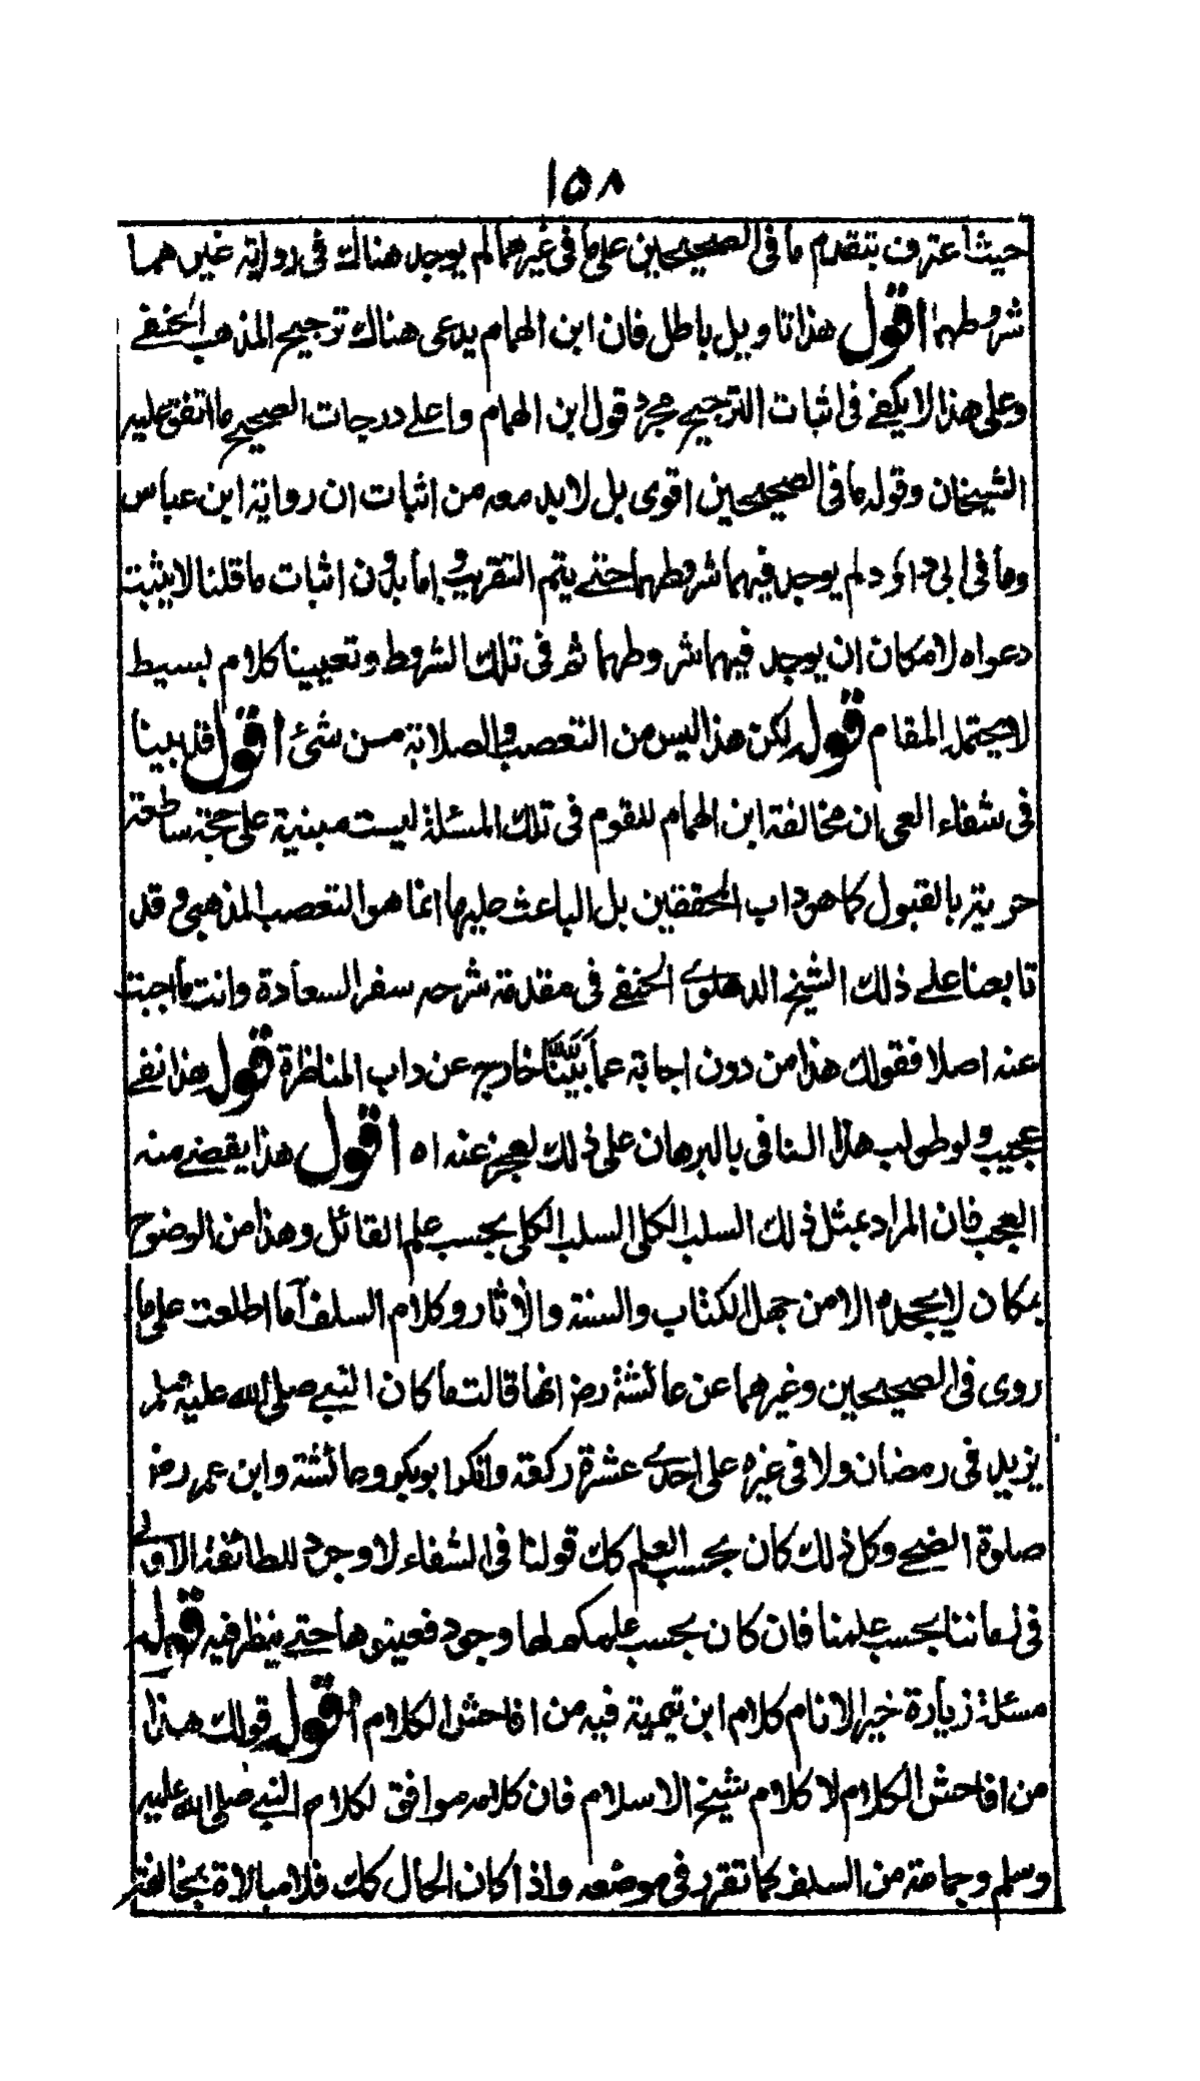 ١٥٨
حيث اعترف بتقدم ما فى الصحيحين على ما فى غيرهما لم يوجد هناك فى رواية غيرهما
شروطهما اقول هذا تاويل باطل فان ابن الهمام يدعى هناك ترجيح المذهب الحنفے
وعلى هذا لا يكفے فى اثبات الترجيح مجرد قول ابن الهمام واعلے درجات الصحيح ما اتفق عليه
الشيخان وقوله ما فى الصحيحين اقوى بل لابد معه من اثبات ان رواية ابن عباس
وما فى ابى داؤد لم يوجد فيهما شروطهما حتے يتم التقريب واما بدون اثبات ما قلنا لا يثبت
دعواه لامكان ان يوجد فيهما شروطهما ثم فى تلك الشروط وتعيينا كلام بسيط
لا يحتمله المقام قوله لكن هذا ليس من التعصب والصلابة من شئ اقول قد بينا
فى شفاء العى ان مخالفة ابن الهمام للقوم فى تلك المسئلة ليست مبنية على حجة ساطعة
حرية بالقبول كما هو داب المحققين بل الباعث عليها انما هو التعصب المذهبى وقد
تابعنا علے ذلك الشيخ الدهلوے الحنفے فى مقدمة شرحه سفر السعادة وانت ما اجبت
عنه اصلا فقولك هذا من دون اجابة عما بَيَّنَّا خارج عن داب المناظرة قوله هذا نفے
عجيب ولو طولب هذا النافى بالبرهان على ذلك لعجز عنه اه اقول هذا يقضے منه
العجب فان المراد بمثل ذلك السلب الكلى السلب الكلى بحسب علم القائل وهذا من الوضوح
بمكان لا يجحده الا من جهل الكتاب والسنة والآثار وكلام السلف اما اطلعت على ما
روى فى الصحيحين وغيرهما عن عائشة رض انها قالت ما كان النبے صلى الله عليه وسلم
يزيد فى رمضان ولا فى غيره على احدے عشرة ركعة وانكر ابو بكر وعائشة وابن عمر رض
صلوة الضحے وكل ذلك كان بحسب العلم كك قولنا فى الشفاء لا وجود للطائفة الاولے
فى زماننا بحسب علمنا فان كان بحسب علمكم لها وجود فعينوها حتے ينظر فيه قوله
مسئلة زيارة خير الانام كلام ابن تيمية فيه من افاحش الكلام اقول قولك هذا
من افاحش الكلام لا كلام شيخ الاسلام فان كلامه موافق لكلام النبے صلى الله عليه
وسلم وجماعة من السلف كما تقرر فى موضعه واذا كان الحال كك فلا مبالاة بمخالفة